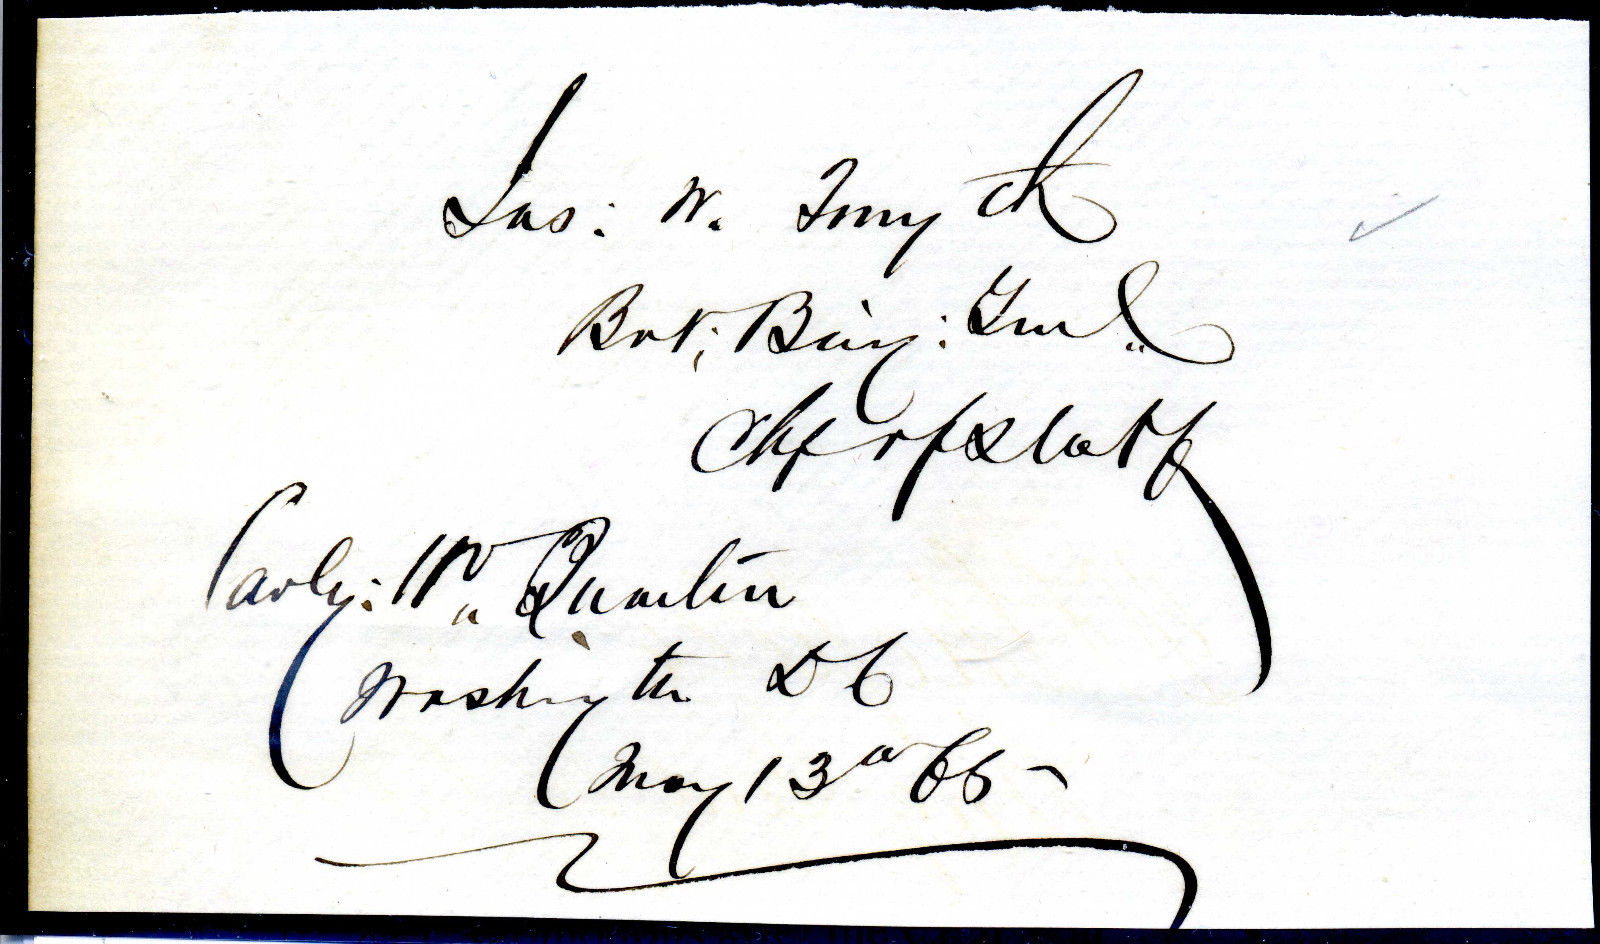 Jas: W. Forsyth
Bvt; Brig: Genl
Chf of Staff
Cavly: Hd
Washington D C
May 13 65